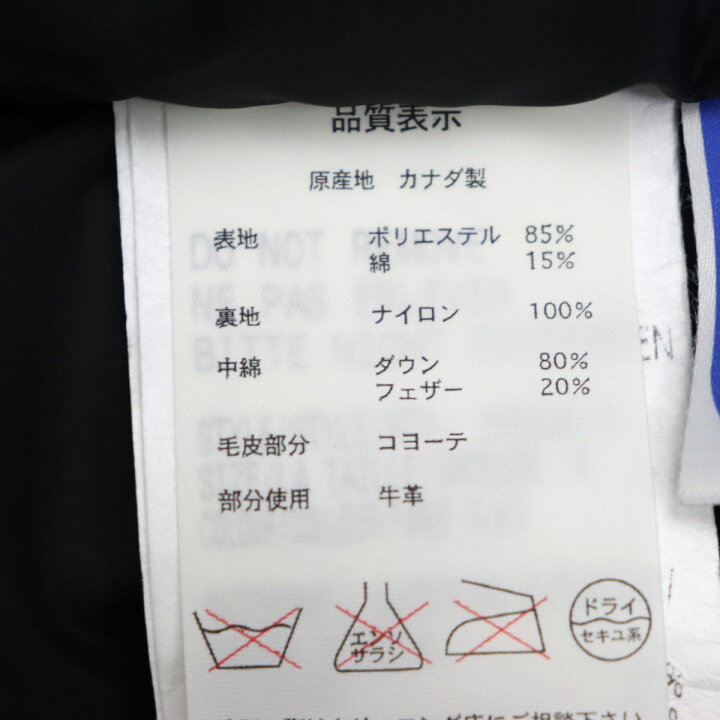 品質表示
原産地 カナダ製
表地 ポリエステル 85%
綿 15%
裏地 ナイロン 100%
中綿 ダウン 80%
フェザー 20%
毛皮部分 コヨーテ
部分使用 牛革
エンソ
サラシ
ドライ
セキユ系
EN
DO NOT REMOVE
NE PAS
BITTE